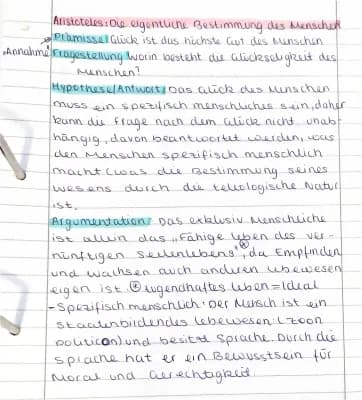 Aristoteles: Die eigentliche Bestimmung des Menschen
Prämisse: Glück ist das höchste Gut des Menschen
Annahme Fragestellung: Worin besteht die Glückseligkeit des
Menschen?
Hypothese/Antwort: Das Glück des Menschen
muss ein spezifisch menschliches sein, daher
kann die Frage nach dem Glück nicht unab-
hängig, davon beantwortet werden, was
den Menschen spezifisch menschlich
macht (was die Bestimmung seines
Wesens durch die teleologische Natur
ist.
Argumentation: Das exklusiv Menschliche
ist allein das „Fähige Leben des ver-
nünftigen Seelenlebens", da Empfinden
und Wachsen auch anderen Lebewesen
eigen ist. tugendhaftes Leben = Ideal
- Spezifisch menschlich: Der Mensch ist ein
staatenbildendes Lebewesen: (zoon
politicon) und besitzt Sprache. Durch die
Sprache hat er ein Bewusstsein für
Moral und Gerechtigkeit.